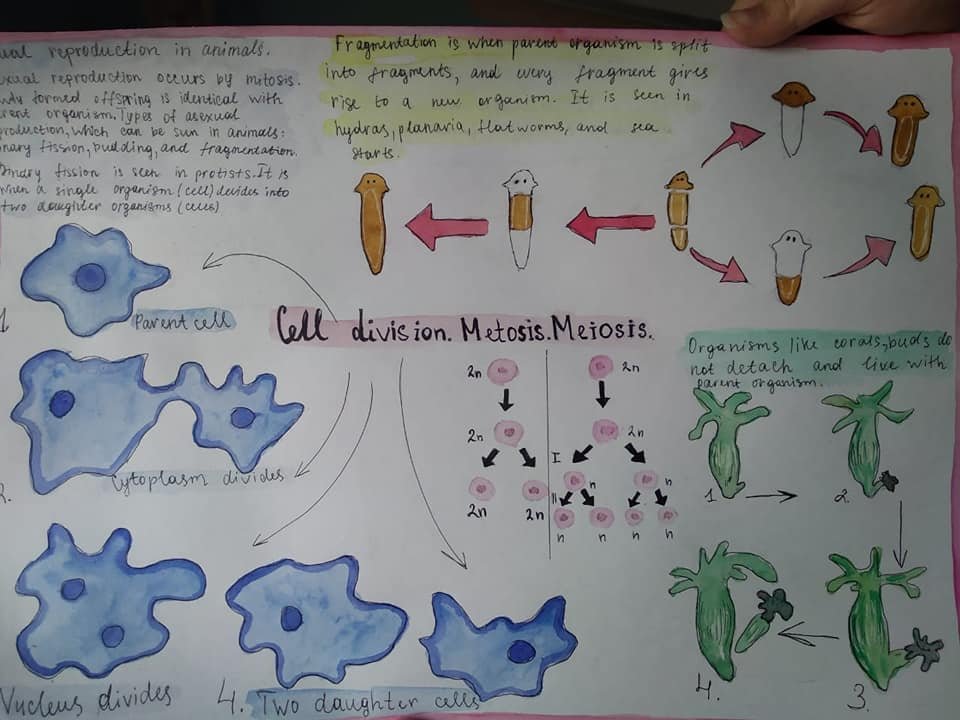 ual reproduction in animals.
exual reproduction occurs by mitosis.
wly formed offspring is identical with
rent organism. Types of asexual
production, which can be sun in animals:
nary fission, budding, and fragmentation.
Binary fission is seen in protists. It is
when a single organism (cell) divides into
two daughter organisms (cells)
Fragmentation is when parent organism is split
into fragments, and every fragment gives
rise to a new organism. It is seen in
hydras, planaria, flatworms, and sea
starts.
1.
Parent cell
Cell division. Metosis. Meiosis.
Organisms like corals, buds do
not detach and live with
parent organism.
2n
2n
2n
2n
I
n
n
2n
2n
II
n
n
n
n
1
2
2.
Cytoplasm divides
Nucleus divides
4. Two daughter cells
4.
3.